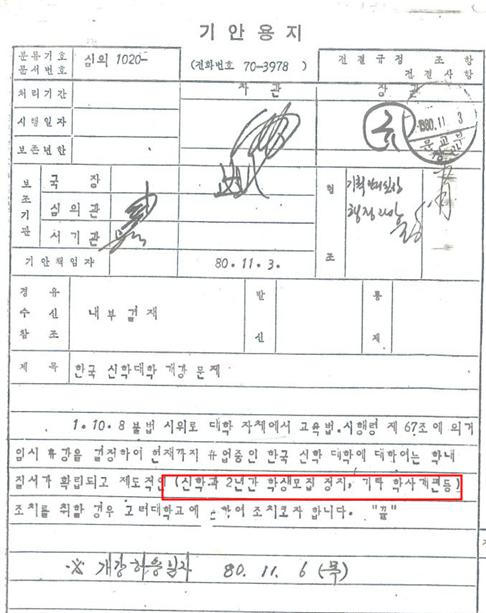 기 안 용 지
분류기호 문서번호 심의 1020-
(전화번호 70-3978)
전결규정 조 항 전결사항
처리기간 차 관 장 관
시행일자
보존년한
1980.11. 3
문교부
보조기관
국 장
심의관
서기관
협 조
기획관리실장
행정
기안책임자 80.11.3.
경유 수신 참조
내부결재
발 신
통 제
제 목 한국 신학대학 개강 문제
1. 10.8 불법 시위로 대학 자체에서 교육법.시행령 제 67조에 의거
임시 휴강을 결정하여 현재까지 휴업중인 한국 신학 대학에 대하여는 학내
질서가 확립되고 제도적인 (신학과 2년간 학생모집 정지, 기타 학사개편등)
조치를 취할 경우 조치코자 합니다. "끝"
※ 개강허용일자 80. 11. 6 (목)